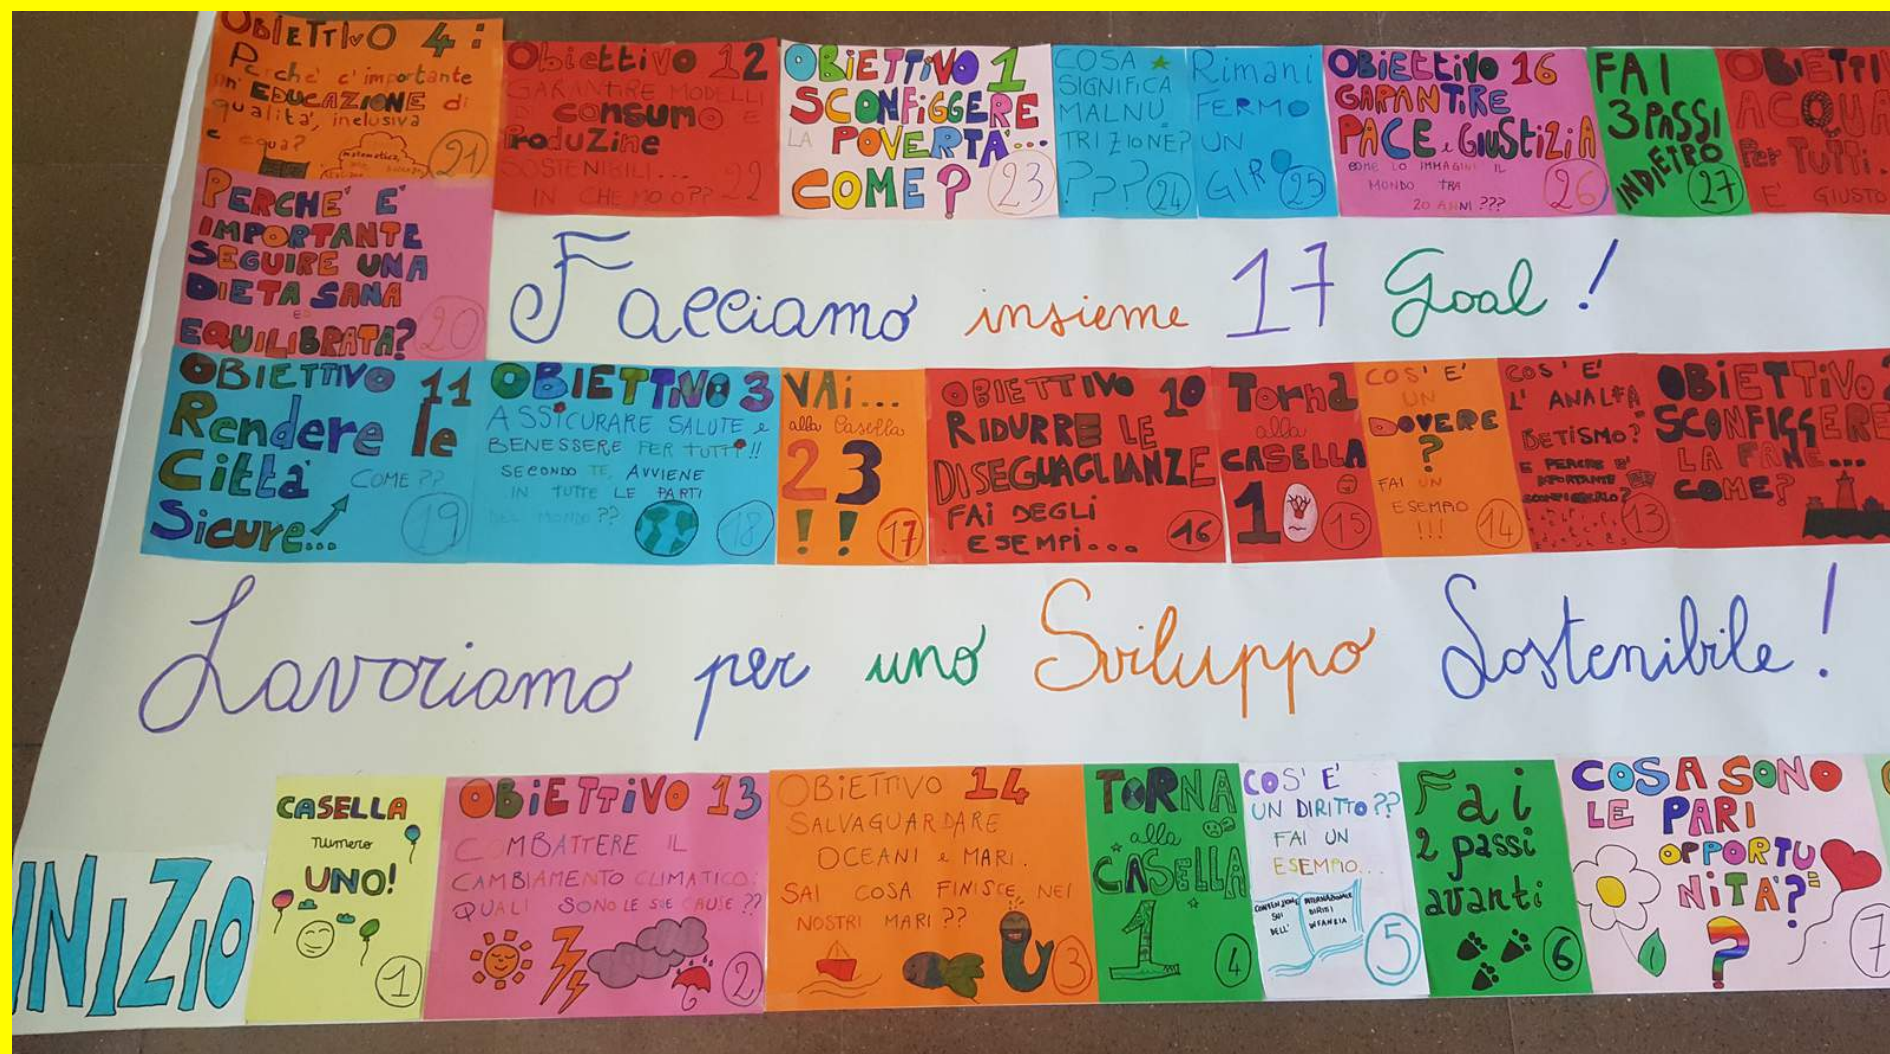 OBIETTIVO 4:
Perche' c'importante
un' EDUCAZIONE di
qualita', inclusiva
e equa?
matematica,
21
Obiettivo 12
GARANTIRE MODELLI
DI CONSUMO E
ProduZine
SOSTENIBILI...
IN CHE MODO?? 22
OBIETTIVO 1
SCONFIGGERE
LA POVERTA'...
COME? 23
COSA
SIGNIFICA
MALNU
TRIZIONE?
??? 24
Rimani
FERMO
UN
GIRO 25
OBIETTIVO 16
GARANTIRE
PACE e GIUSTIZIA
COME LO IMMAGINI IL
MONDO TRA
20 ANNI ??? 26
FAI
3 PASSI
INDIETRO
27
OBIETTIV
ACQUA
Per TUTTI.
E' GIUSTO
PERCHE' E'
IMPORTANTE
SEGUIRE UNA
DIETA SANA
ED
EQUILIBRATA? 20
Facciamo insieme 17 Goal!
OBIETTIVO 11
Rendere le
Città
COME ??
Sicure... 19
OBIETTIVO 3
ASSICURARE SALUTE e
BENESSERE PER TUTTI!!
SECONDO TE, AVVIENE
IN TUTTE LE PARTI
DEL MONDO ?? 18
VAi...
alla Casella
23
!! 17
OBIETTIVO 10
RIDURRE LE
DISEGUAGLIANZE
FAI DEGLI
ESEMPI... 16
Torna
alla
CASELLA
10 15
COS' E'
UN
DOVERE
?
FAI UN
ESEMPIO
!!! 14
COS' E'
L' ANALFA
BETISMO?
E PERCHE E'
IMPORTANTE
SCONFIGGERLO?
13
OBIETTIVO 2
SCONFIGGERE
LA FAME...
COME?
Lavoriamo per uno Sviluppo Sostenibile!
INIZIO
CASELLA
numero
UNO!
1
OBIETTIVO 13
COMBATTERE IL
CAMBIAMENTO CLIMATICO:
QUALI SONO LE SUE CAUSE ??
2
OBIETTIVO 14
SALVAGUARDARE
OCEANI e MARI.
SAI COSA FINISCE NEI
NOSTRI MARI ??
3
TORNA
alla
CASELLA
1 4
COS' E'
UN DIRITTO ??
FAI UN
ESEMPIO...
CONVENZIONE INTERNAZIONALE
SUI DIRITTI
DELL' INFANZIA
5
Fai
2 passi
avanti
6
COSA SONO
LE PARI
OPPORTU
NITA'?
?
7